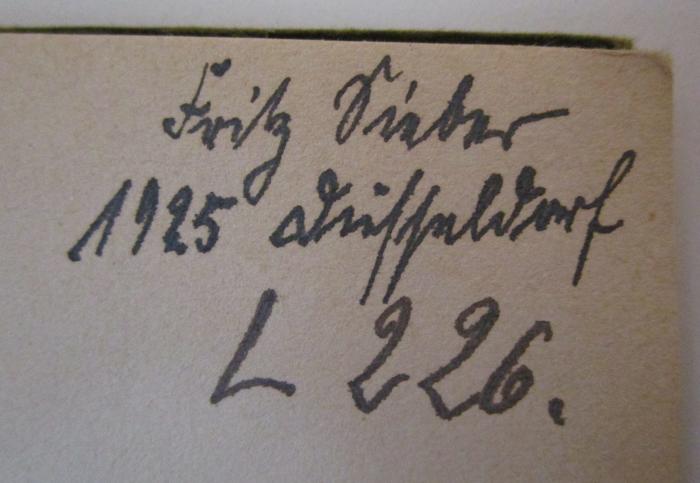 Fritz Sieber
1925 Düsseldorf
L 226.